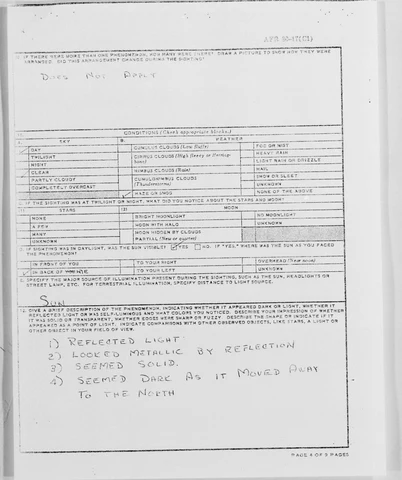 IF THERE WERE MORE THAN ONE PHENOMENON, HOW MANY WERE THERE? DRAW A PICTURE TO SHOW HOW THEY WERE
ARRANGED. DID THIS ARRANGEMENT CHANGE DURING THE SIGHTING?
DOES NOT APPLY
CONDITIONS (Check appropriate blocks)
SKY
WEATHER
DAY
CUMULUS CLOUDS (Low fluffy)
FOG OR MIST
TWILIGHT
CIRRUS CLOUDS (High fleecy or Herring-
bone)
HEAVY RAIN
NIGHT
LIGHT RAIN OR DRIZZLE
CLEAR
NIMBUS CLOUDS (Rain)
HAIL
PARTLY CLOUDY
CUMULONIMBUS CLOUDS
(Thunderstorms)
SNOW OR SLEET
COMPLETELY OVERCAST
UNKNOWN
HAZE OR SMOG
NONE OF THE ABOVE
IF THE SIGHTING WAS AT TWILIGHT OR NIGHT, WHAT DID YOU NOTICE ABOUT THE STARS AND MOON?
STARS
MOON
NONE
BRIGHT MOONLIGHT
NO MOONLIGHT
A FEW
MOON WITH HALO
UNKNOWN
MANY
MOON HIDDEN BY CLOUDS
UNKNOWN
PARTIAL (New or quarter)
IF SIGHTING WAS IN DAYLIGHT, WAS THE SUN VISIBLE? YES NO. IF "YES," WHERE WAS THE SUN AS YOU FACED
THE PHENOMENON?
IN FRONT OF YOU
TO YOUR RIGHT
OVERHEAD (Near noon)
IN BACK OF
TO YOUR LEFT
UNKNOWN
SPECIFY THE MAJOR SOURCE OF ILLUMINATION PRESENT DURING THE SIGHTING, SUCH AS THE SUN, HEADLIGHTS OR
STREET LAMP, ETC. FOR TERRESTRIAL ILLUMINATION, SPECIFY DISTANCE TO LIGHT SOURCE.
SUN
GIVE A BRIEF DESCRIPTION OF THE PHENOMENON, INDICATING WHETHER IT APPEARED DARK OR LIGHT, WHETHER IT
REFLECTED LIGHT OR WAS SELF-LUMINOUS AND WHAT COLORS YOU NOTICED. DESCRIBE YOUR IMPRESSION OF WHETHER
IT WAS SOLID OR TRANSPARENT, WHETHER EDGES WERE SHARP OR FUZZY. DESCRIBE THE SHAPE OR INDICATE IF IT
APPEARED AS A POINT OF LIGHT. INDICATE COMPARISONS WITH OTHER OBSERVED OBJECTS, LIKE STARS, A LIGHT OR
OTHER OBJECT IN YOUR FIELD OF VIEW.
1) REFLECTED LIGHT.
2) LOOKED METALLIC BY REFLECTION
3) SEEMED SOLID.
4) SEEMED DARK AS IT MOVED AWAY
TO THE NORTH
PAGE 4 OF 5 PAGES